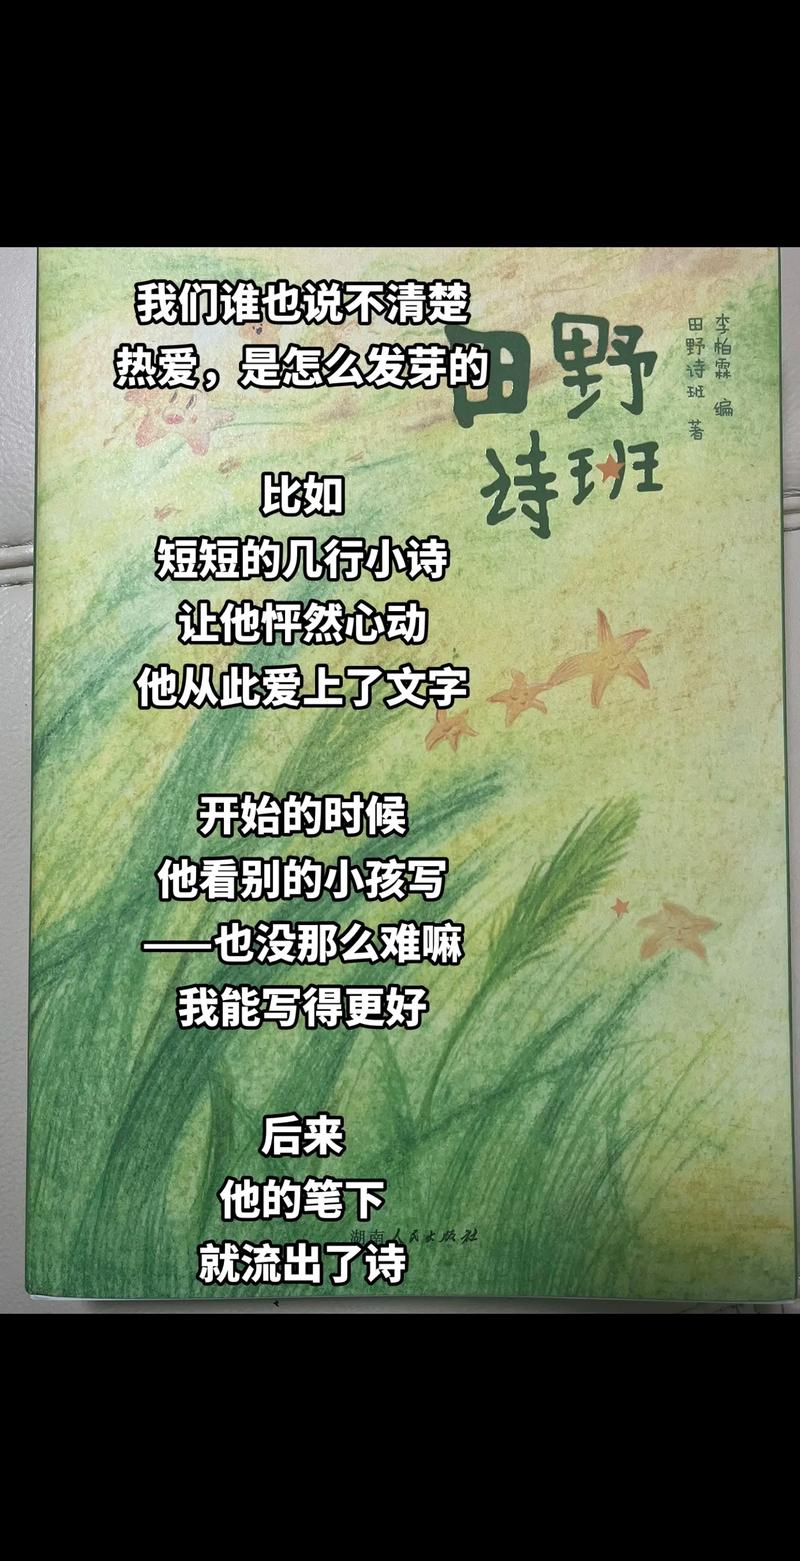 我们谁也说不清楚
热爱，是怎么发芽的
比如
短短的几行小诗
让他怦然心动
他从此爱上了文字
开始的时候
他看别的小孩写
——也没那么难嘛
我能写得更好
后来
他的笔下
就流出了诗
田野
诗班
李柏霖 编
田野诗班 著
湖南人民出版社